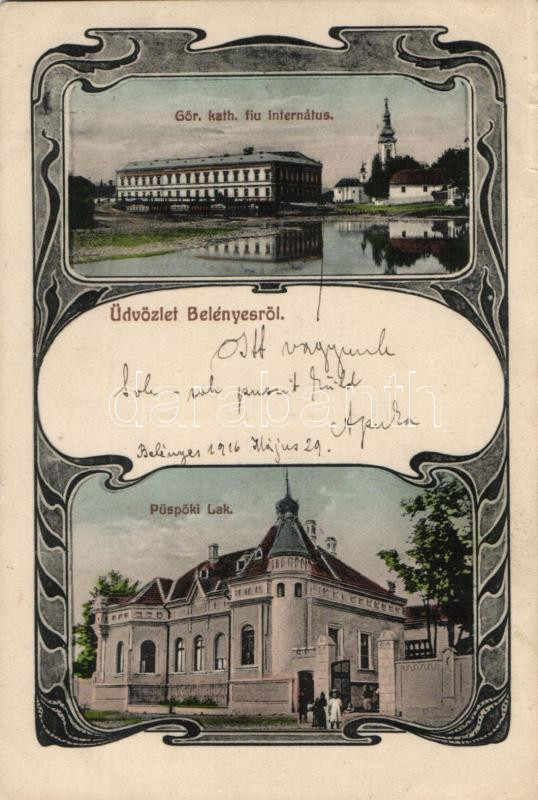 Gör. kath. fiu internátus.
Üdvözlet Belényesről.
Ott vagyunk
Sok - sok puszit küld
Apuka
darabanth
Belényes 1916 Május 29.
Püspöki Lak.